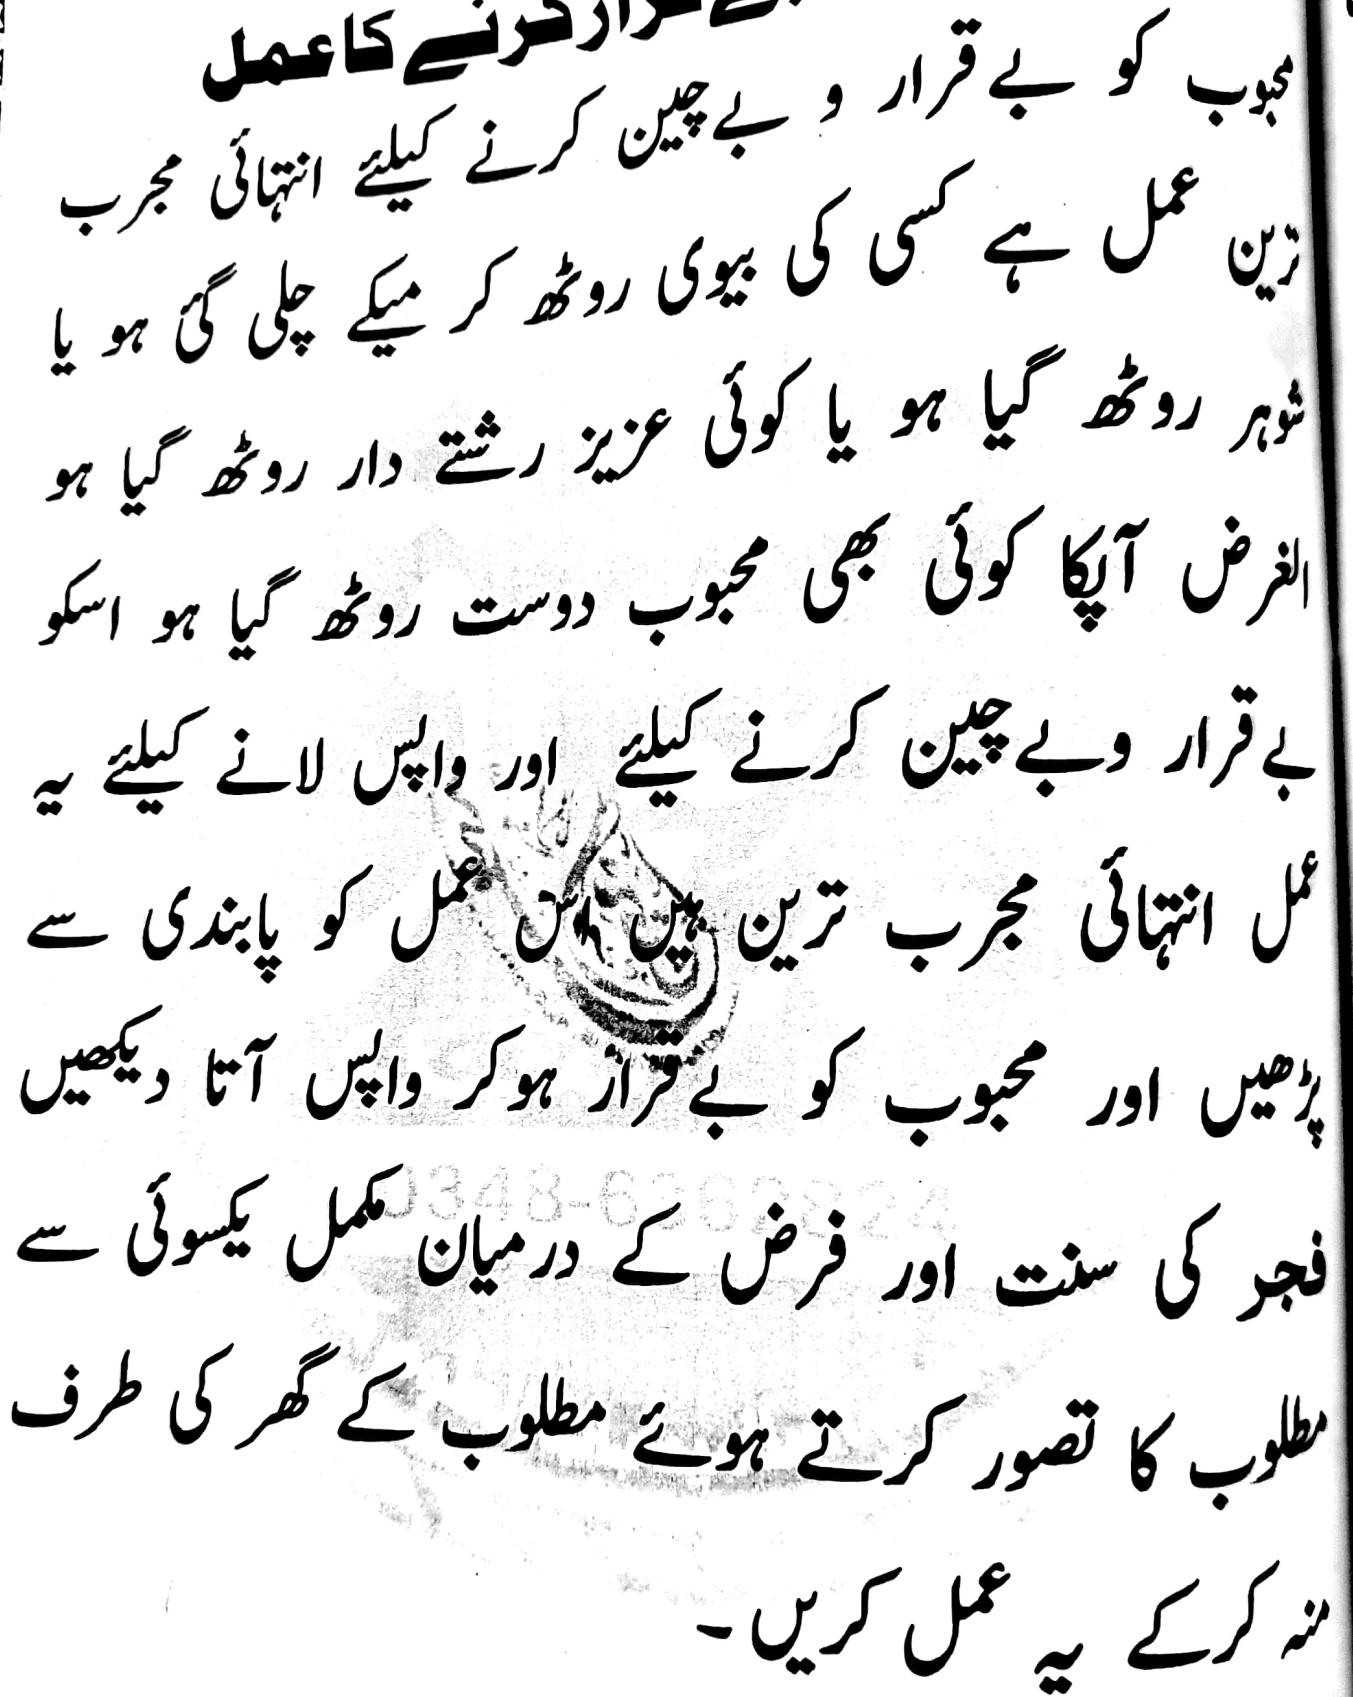 بے قرار کرنے کا عمل
محبوب کو بے قرار و بے چین کرنے کیلئے انتہائی مجرب
ترین عمل ہے کسی کی بیوی روٹھ کر میکے چلی گئی ہو یا
شوہر روٹھ گیا ہو یا کوئی عزیز رشتے دار روٹھ گیا ہو
الغرض آپکا کوئی بھی محبوب دوست روٹھ گیا ہو اسکو
بے قرار وبے چین کرنے کیلئے اور واپس لانے کیلئے یہ
عمل انتہائی مجرب ترین ہیں اس عمل کو پابندی سے
پڑھیں اور محبوب کو بے قرار ہوکر واپس آتا دیکھیں
0348-6262824
فجر کی سنت اور فرض کے درمیان مکمل یکسوئی سے
مطلوب کا تصور کرتے ہوئے مطلوب کے گھر کی طرف
منہ کرکے یہ عمل کریں ۔